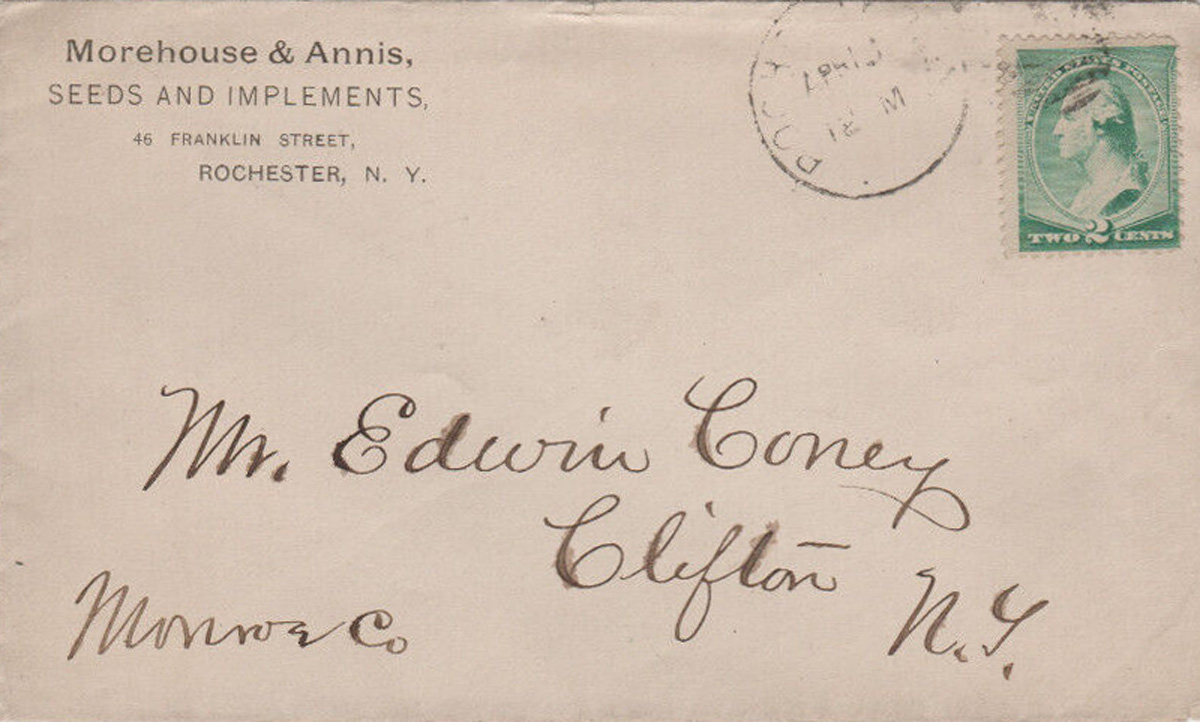 Morehouse & Annis,
SEEDS AND IMPLEMENTS,
46 FRANKLIN STREET,
ROCHESTER, N. Y.
UNITED STATES POSTAGE
TWO 2 CENTS
Mr. Edwin Coney
Clifton
N.Y.
Monroe Co